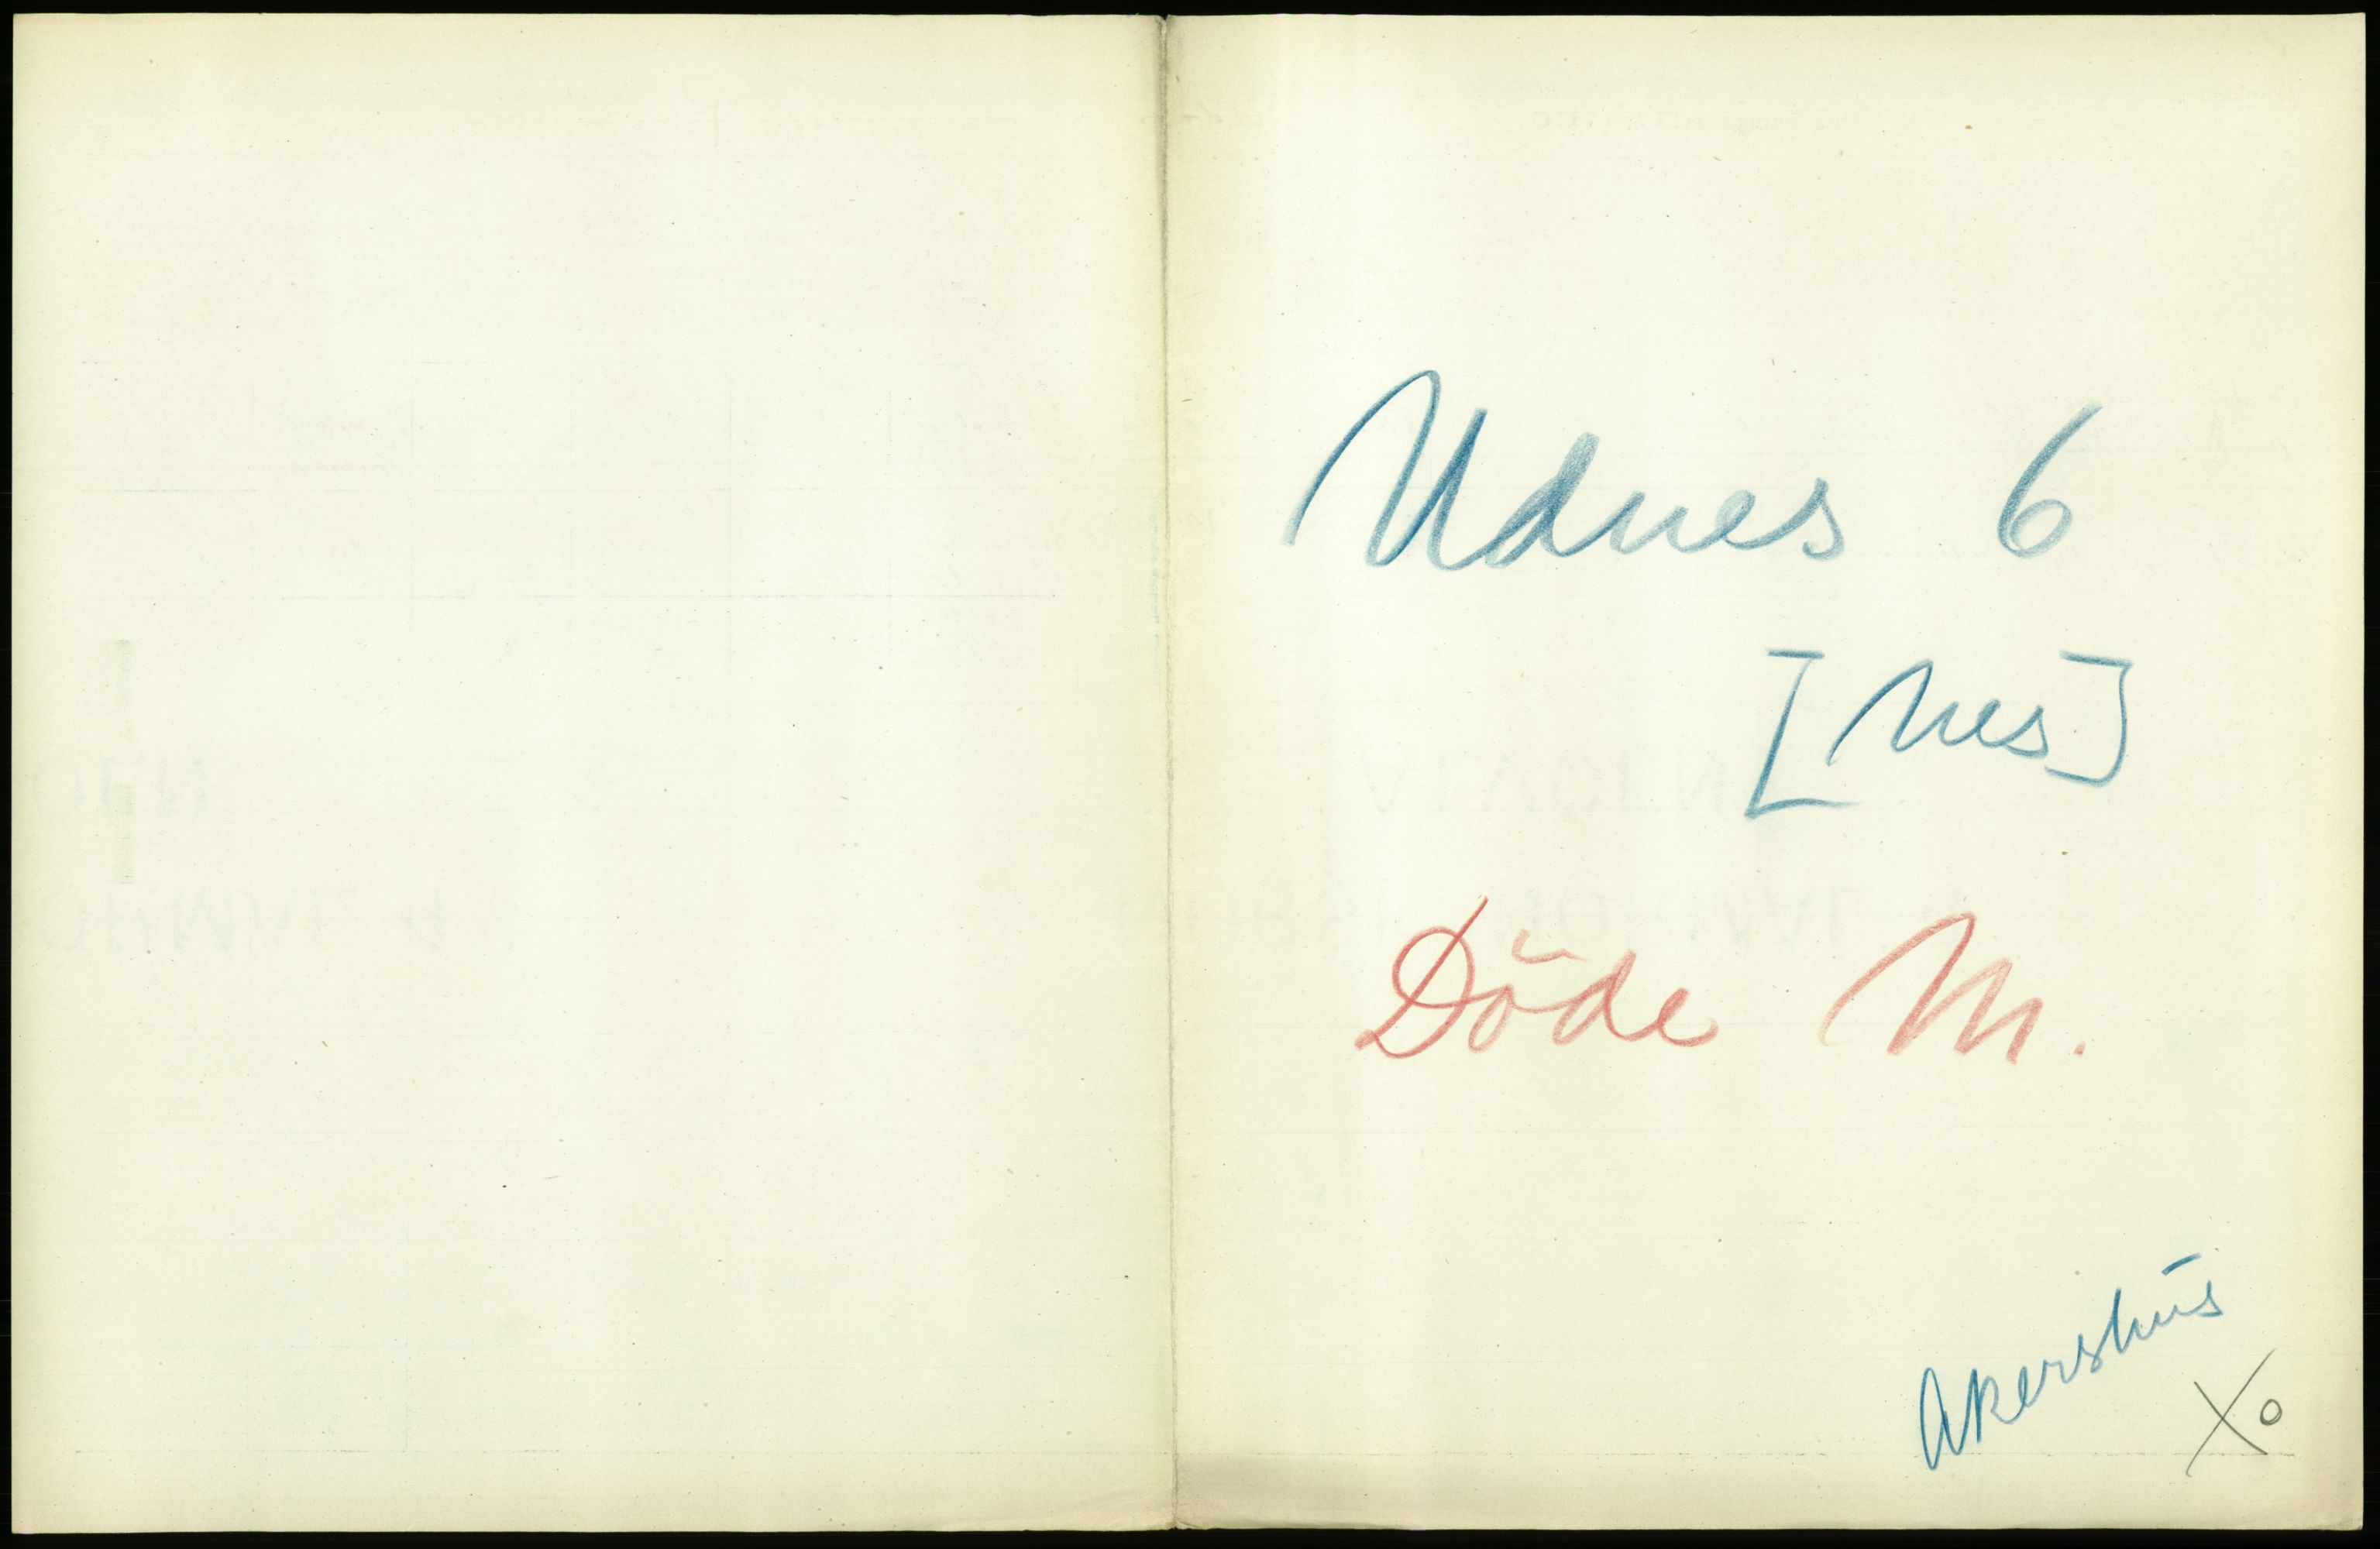 Udnes 6
[Nes]
Döde M.
Akershus
Xo